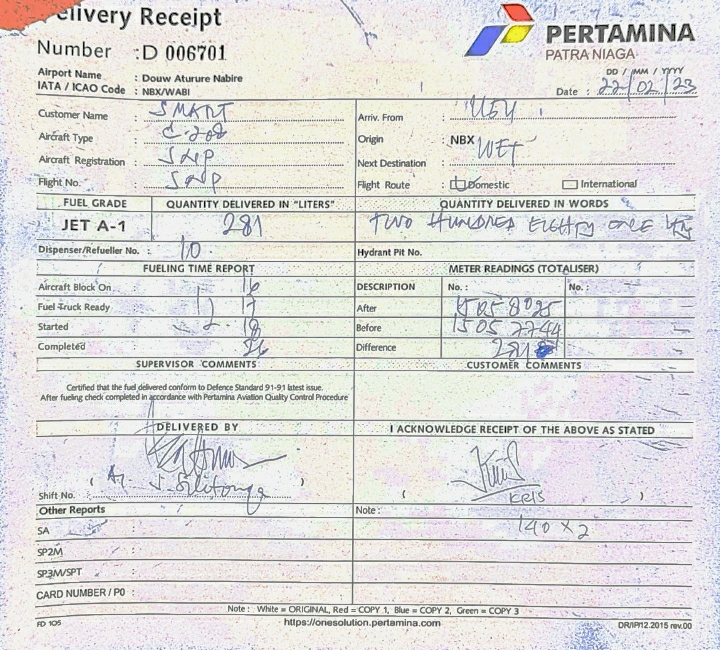 Delivery Receipt
Number : D 006701
PERTAMINA
PATRA NIAGA
Airport Name : Douw Aturure Nabire
IATA / ICAO Code : NBX/WABI
DD / MM / YYYY
Date : 22/02/23
Customer Name : SMART
Arriv. From :
Aircraft Type : C-208
Origin : NBX
Aircraft Registration : SNP
Next Destination :
Flight No. : SNP
Flight Route : Domestic International
FUEL GRADE QUANTITY DELIVERED IN "LITERS" QUANTITY DELIVERED IN WORDS
JET A-1 281 TWO HUNDRED EIGHTY ONE
Dispenser/Refueller No. : 10 Hydrant Pit No.
FUELING TIME REPORT METER READINGS (TOTALISER)
Aircraft Block On 16 DESCRIPTION No. : No. :
Fuel Truck Ready 17 After 1505 8025
Started 18 Before 1505 7744
Completed 26 Difference 281
SUPERVISOR COMMENTS CUSTOMER COMMENTS
Certified that the fuel delivered conform to Defence Standard 91-91 latest issue.
After fueling check completed in accordance with Pertamina Aviation Quality Control Procedure
DELIVERED BY I ACKNOWLEDGE RECEIPT OF THE ABOVE AS STATED
KRIS
Shift No. ( ) ( )
Other Reports Note :
140 x 2
SA :
SP2M :
SP3M/SPT :
CARD NUMBER / PO :
Note : White = ORIGINAL, Red = COPY 1, Blue = COPY 2, Green = COPY 3
FD 105 https://onesolution.pertamina.com DR/IP/12.2015 rev.00